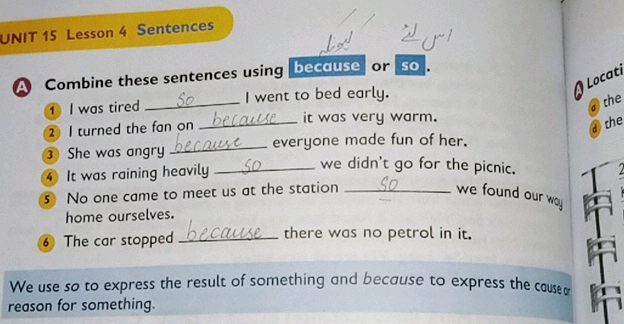 UNIT 15 Lesson 4 Sentences
کیونکہ اس لئے
A Combine these sentences using because or so.
1 I was tired so I went to bed early.
2 I turned the fan on because it was very warm.
3 She was angry because everyone made fun of her.
4 It was raining heavily so we didn't go for the picnic.
5 No one came to meet us at the station so we found our way
home ourselves.
6 The car stopped because there was no petrol in it.
We use so to express the result of something and because to express the cause or
reason for something.
A Locati
a the
d the
2